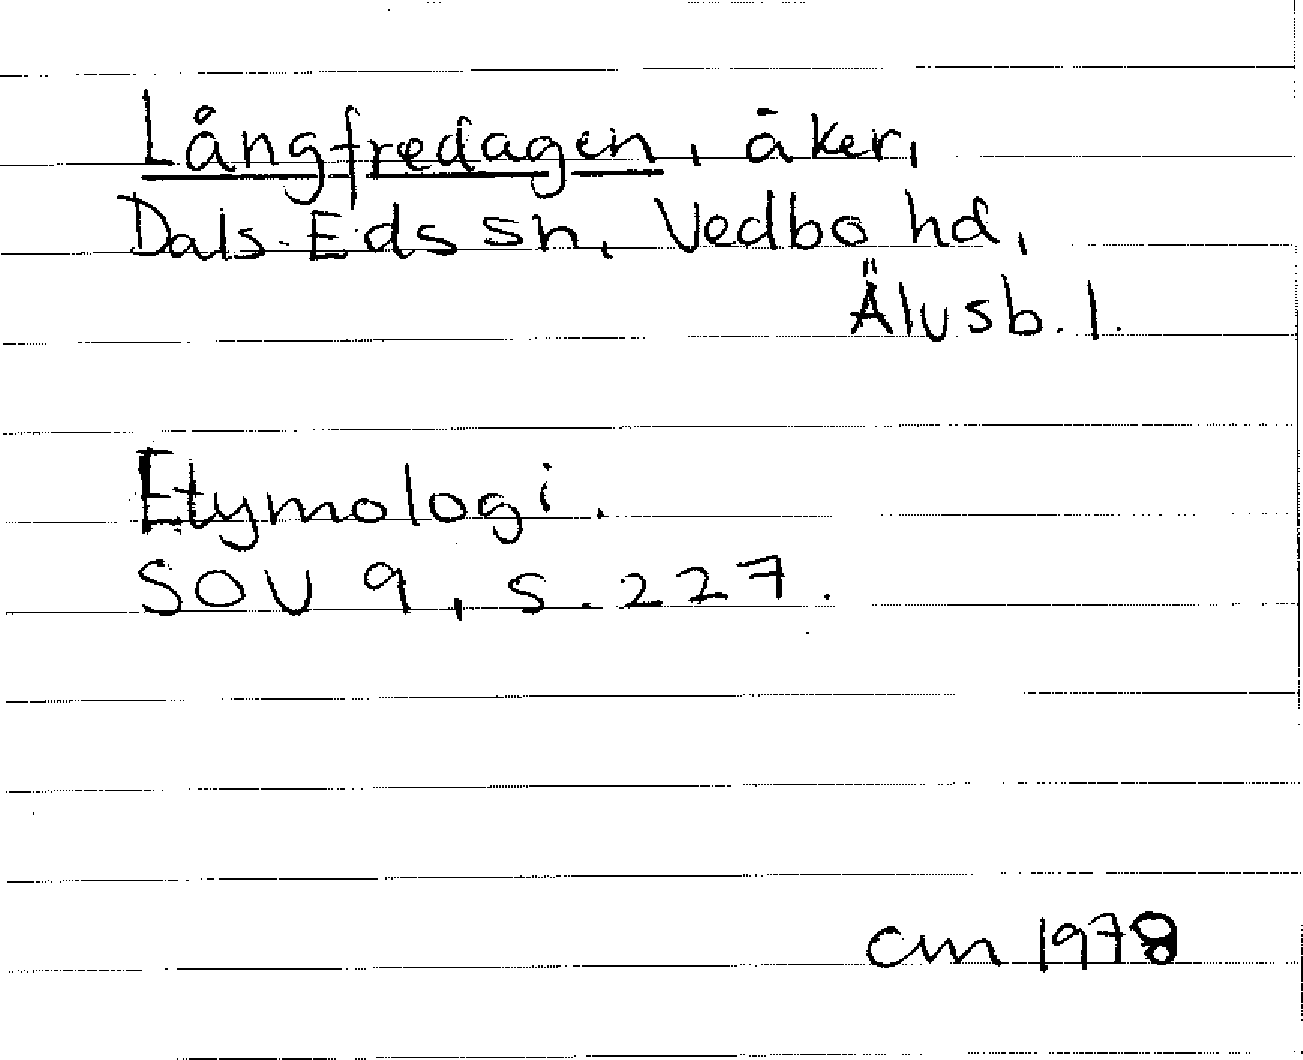 Långfredagen, åker,
Dals-Eds sn, Vedbo hd,
Älvsb. l.
Etymologi.
SOV 9, s. 227.
CM 1978